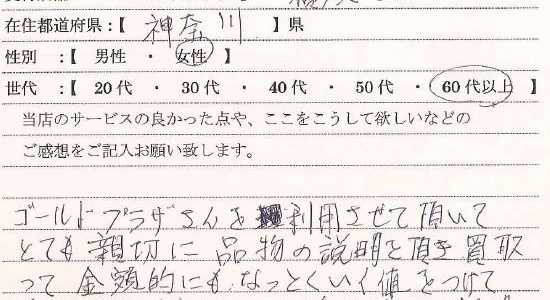 在住都道府県：【 神奈川 】県
性別 ：【 男性 ・ 女性 】
世代 ：【 20代 ・ 30代 ・ 40代 ・ 50代 ・ 60代以上 】
当店のサービスの良かった点や、ここをこうして欲しいなどの
ご感想をご記入お願い致します。
ゴールドプラザさんを利用させて頂いて
とても親切に品物の説明を頂き買取
って金額的にもなっとくいく値をつけて